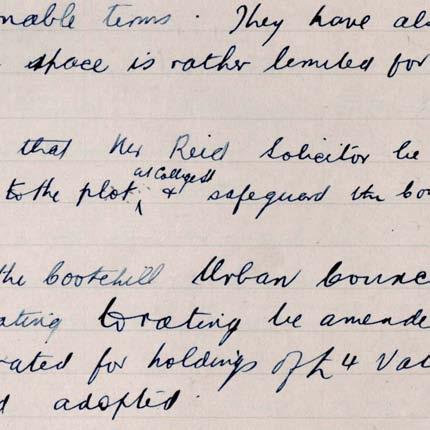 nable terms. They have als
space is rather limited for
that Mr Reid Solicitor be
to the plot at College St & safeguard the Co
the Cootehill Urban Counc
ating to rating be amende
rated for holdings of £4 Val
d adopted.